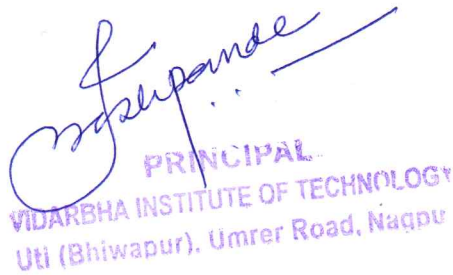 Deshpande
PRINCIPAL
VIDARBHA INSTITUTE OF TECHNOLOGY
Uti (Bhiwapur), Umrer Road, Nagpu